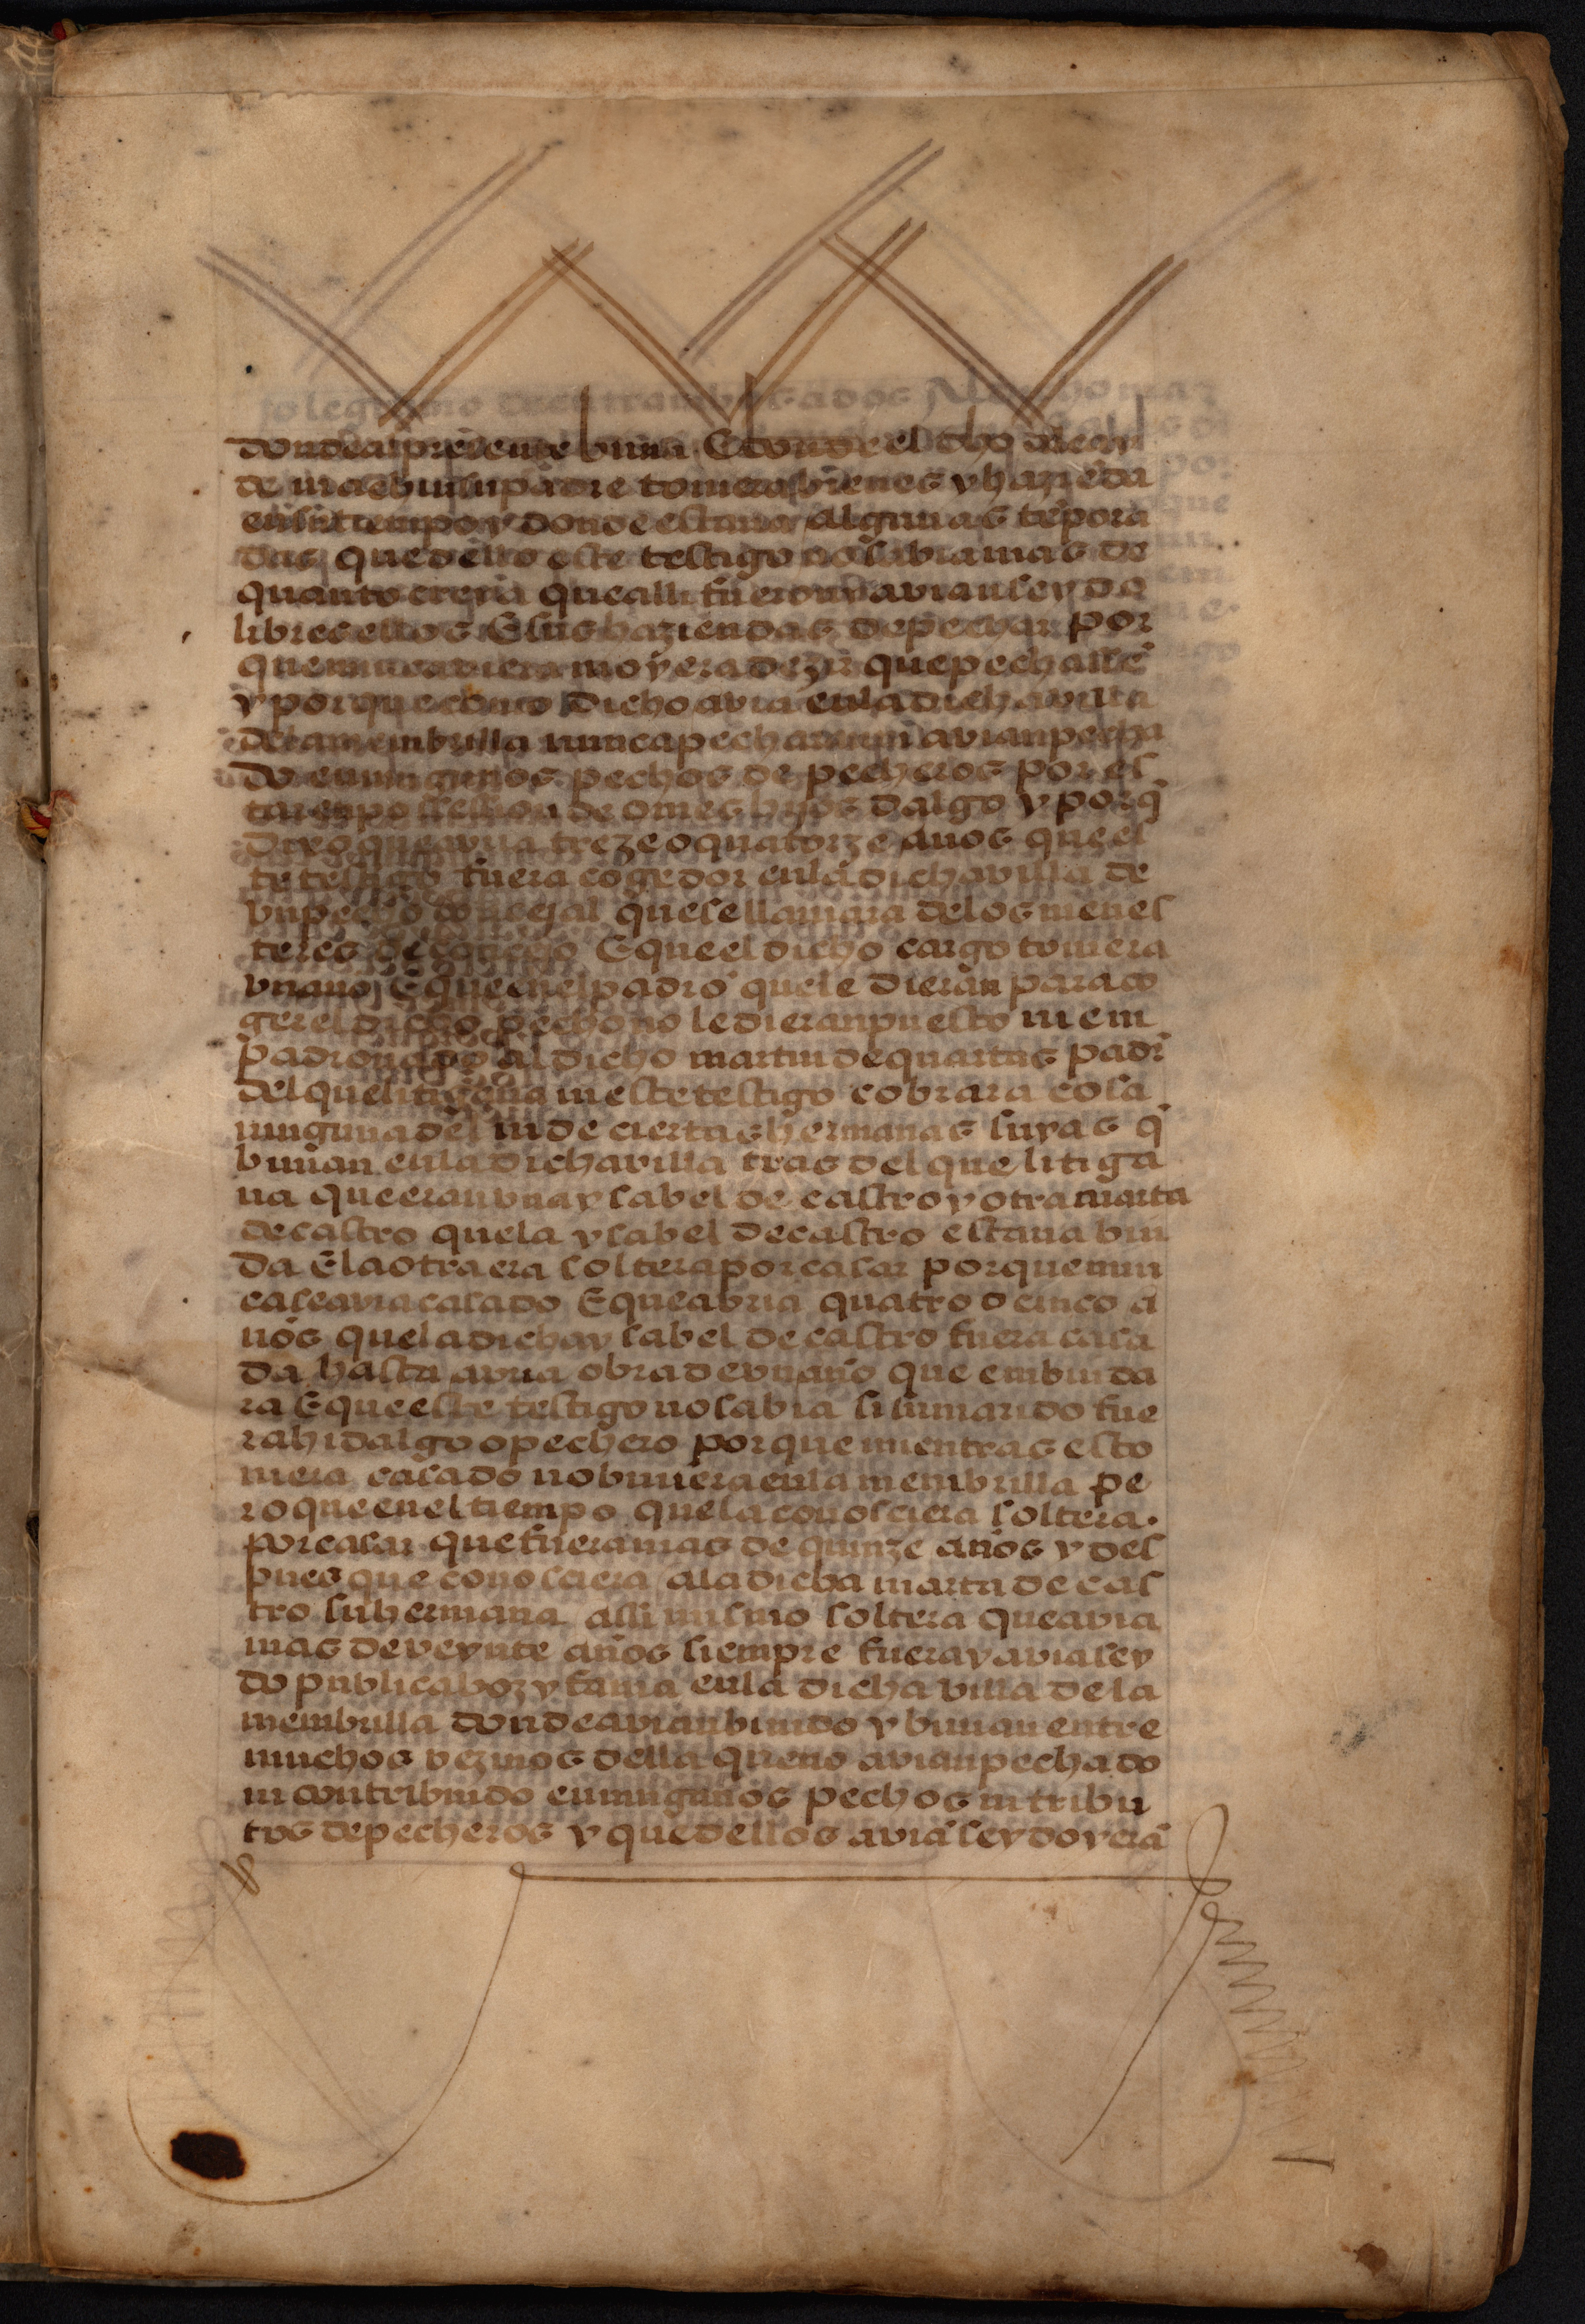 donde al presente biuia E donde el dho
de mas biuir su padre touiera bienes y hazieda
en su tiempo y donde estaua algunas tepora
das que dello este testigo no sabia mas de
quanto creya que alli fueron y avian seydo
libres ellos E sus haziendas de pechar por
que nunca oyera dezir que pechasse
y porque como dicho avia en la dicha villa
de la membrilla nunca pecharan ni avian pecha
do en ningunos pechos de pecheros por es
tar en possession de omes hijos dalgo y porq
dixo que avria treze o quatorze años que es
te testigo fuera cogedor en la dicha villa de
vn pecho concejal que se llamaua de los menes
teres de concejo E que el dicho cargo touiera
vn año E que en el padró que le dieran para co
ger el dicho pecho no le dieran puesto ni em
padronado al dicho martin de quartas padr
del que litigaua ni este testigo cobrara cosa
ninguna del ni de ciertas hermanas suyas q
biuian en la dicha villa tras del que litiga
ua que eran vna ysabel de castro y otra marta
de castro que la ysabel de castro estaua biu
da E la otra era soltera por casar porque nun
ca se avia casado E que abria quatro o cinco a
ños que la dicha ysabel de castro fuera casa
da hasta avria obra de vn año que enbiuda
ra E que este testigo no sabia si su marido fue
ra hidalgo o pechero porque mientras esto
uiera casado no biuiera en la membrilla pe
ro que en el tiempo que la conosciera soltera.
por casar que fuera mas de quinze años y des
pues que conosciera a la dicha marta de cas
tro su hermana assi mismo soltera que avia
mas de veynte años siempre fuera y avia sey
do publica boz y fama en la dicha villa de la
membrilla donde avian biuido y biuian entre
muchos vezinos della que no avian pechado
ni contribuido en ningunos pechos ni tribu
tos de pecheros y que dellos aviá seydo y erá